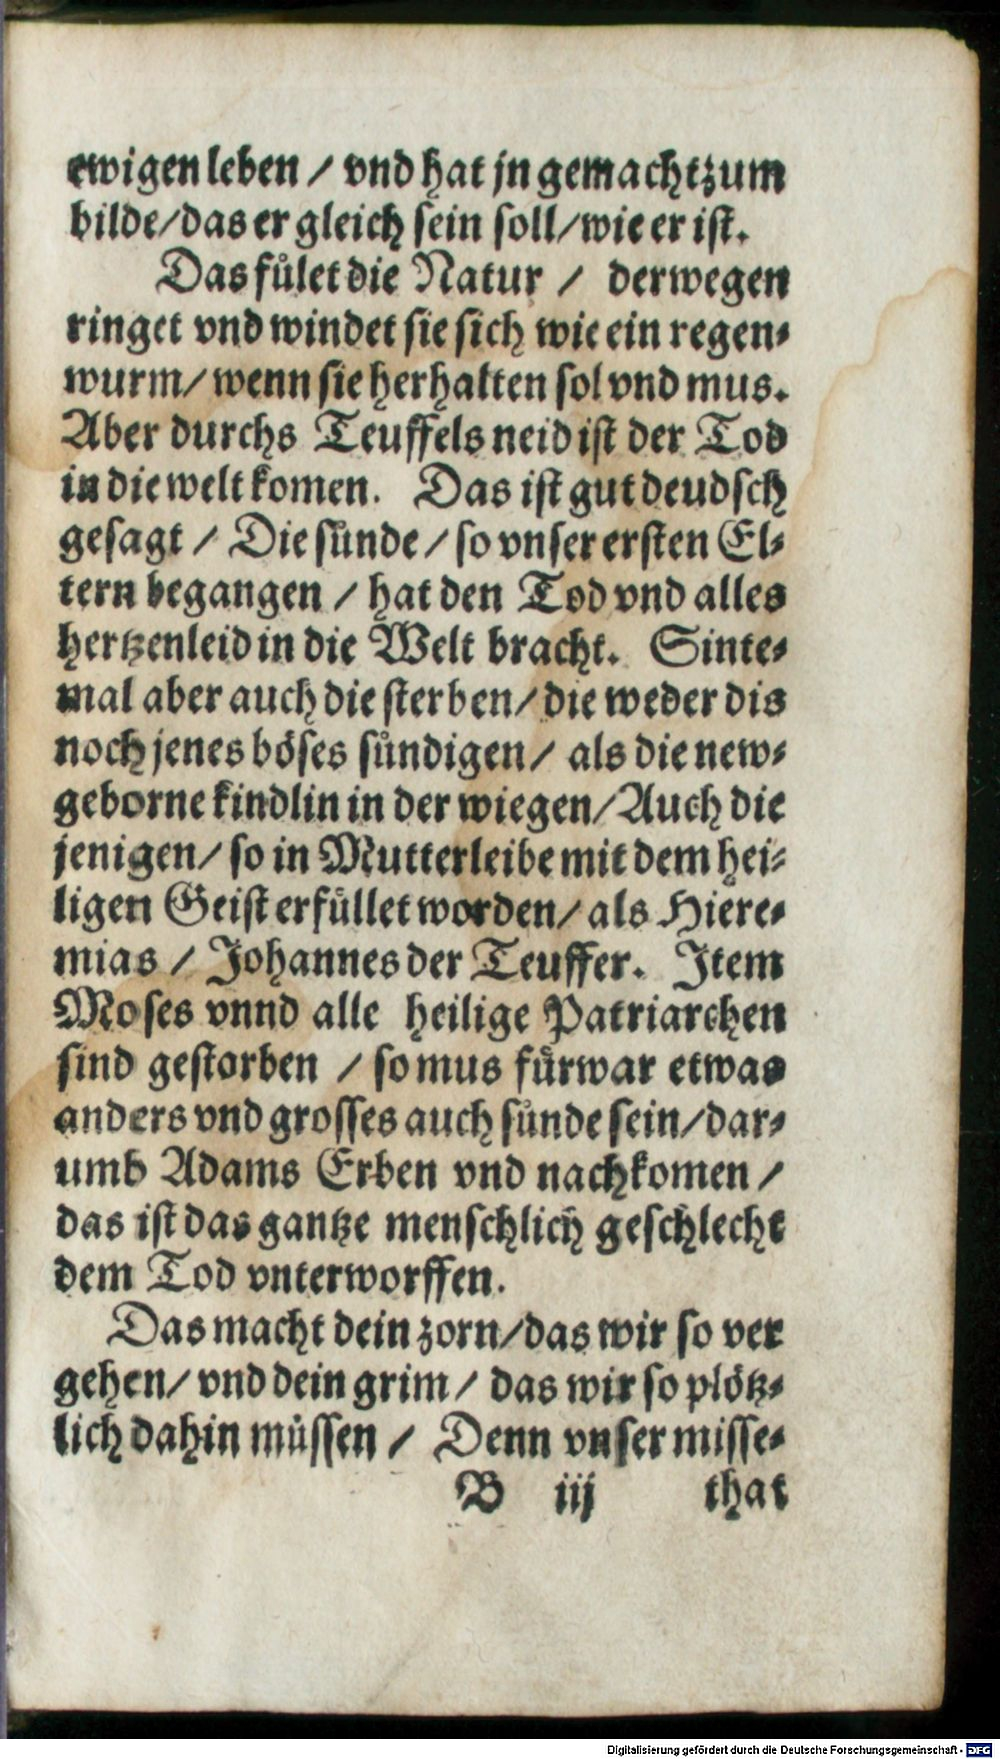 ewigen leben / vnd hat jn gemacht zum
bilde / das er gleich sein soll / wie er ist.
Das fuͤlet die Natur / derwegen
ringet vnd windet sie sich wie ein regen-
wurm / wenn sie herhalten sol vnd mus.
Aber durchs Teuffels neid ist der Tod
in die welt komen. Das ist gut deudsch
gesagt / Die suͤnde / so vnser ersten El-
tern begangen / hat den Tod vnd alles
hertzenleid in die Welt bracht. Sinte-
mal aber auch die sterben / die weder dis
noch jenes boͤses suͤndigen / als die new-
geborne kindlin in der wiegen / Auch die
jenigen / so in Mutterleibe mit dem hei-
ligen Geist erfuͤllet worden / als Hiere-
mias / Johannes der Teuffer. Item
Moses vnnd alle heilige Patriarchen
sind gestorben / so mus fuͤrwar etwas
anders vnd grosses auch suͤnde sein / dar-
umb Adams Erben vnd nachkomen /
das ist das gantze menschlich geschlecht
dem Tod vnterworffen.
Das macht dein zorn / das wir so ver
gehen / vnd dein grim / das wir so ploͤtz-
lich dahin muͤssen / Denn vnser misse-
B iij that
Digitalisierung gefördert durch die Deutsche Forschungsgemeinschaft - DFG